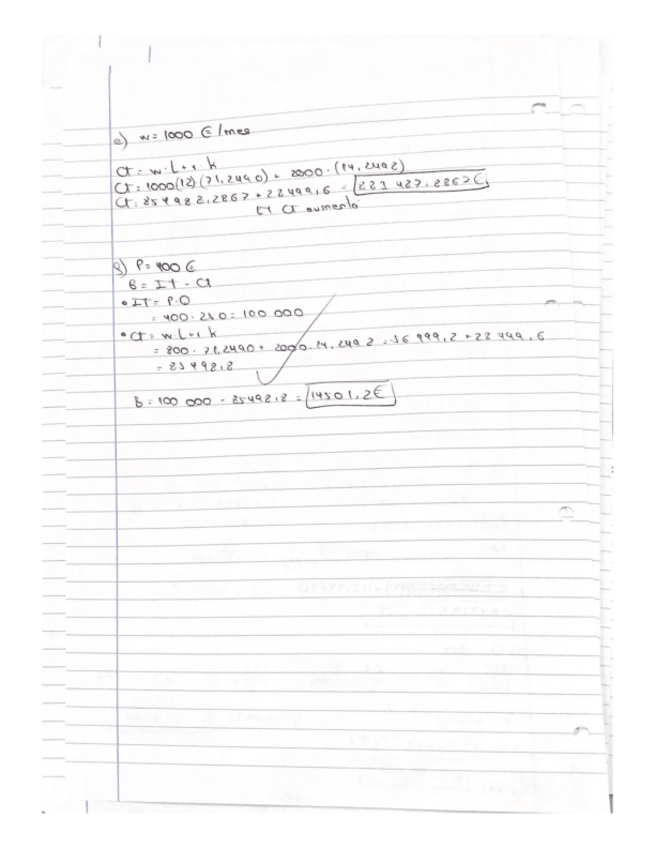 e) w = 1000 €/mes
CT = w·L + r·k
CT = 1000(12)(71,2490) + 2000·(14,2492)
CT = 854 988,2867 + 28 499,6 = 883 487,2867 €
El CT aumenta
g) P = 400 €
B = IT - CT
• IT = P·Q
= 400·250 = 100 000
• CT = w·L + r·k
= 800·71,2490 + 2000·14,249 8 = 56 999,2 + 28 499,6
= 85498,8
B = 100 000 - 85498,8 = 14501,2€